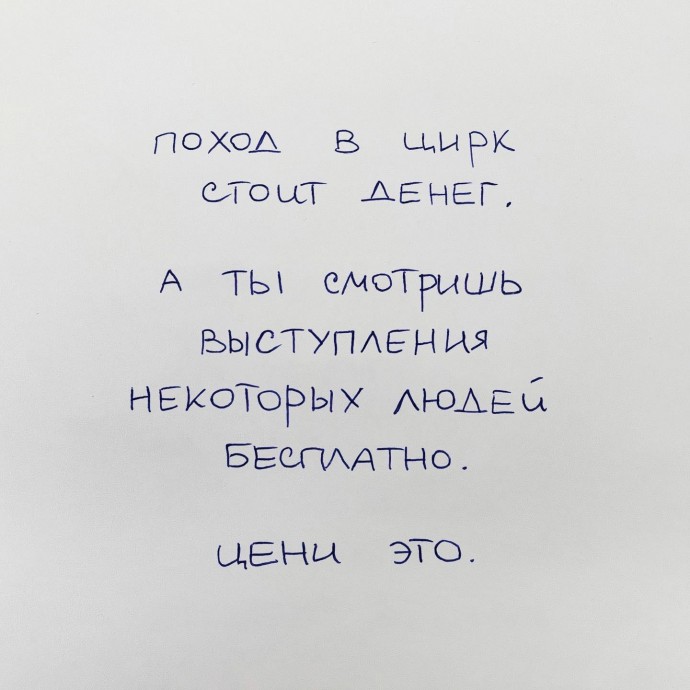 ПОХОД В ЦИРК
СТОИТ ДЕНЕГ.
А ТЫ СМОТРИШЬ
ВЫСТУПЛЕНИЯ
НЕКОТОРЫХ ЛЮДЕЙ
БЕСПЛАТНО.
ЦЕНИ ЭТО.